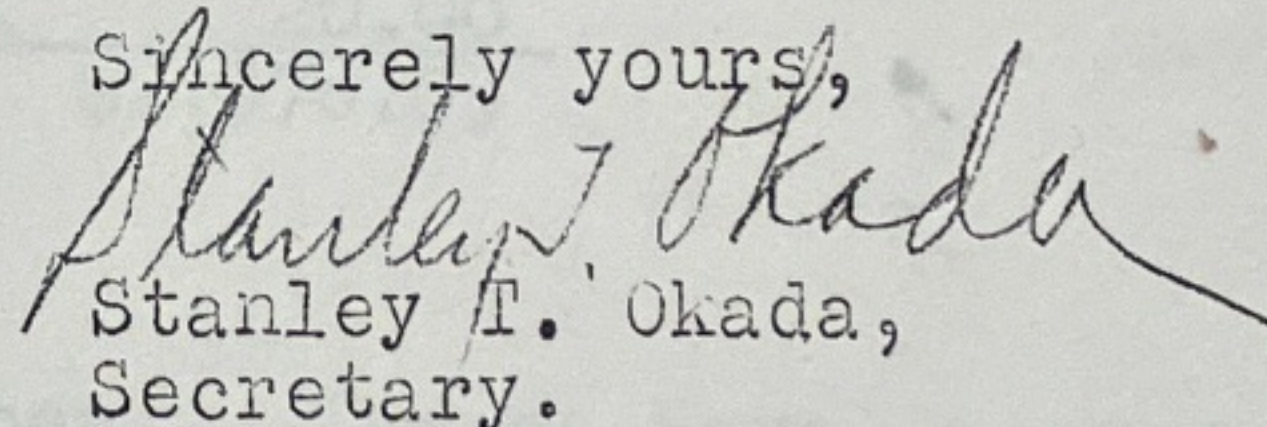 Sincerely yours,
Stanley T. Okada
Stanley T. Okada,
Secretary.